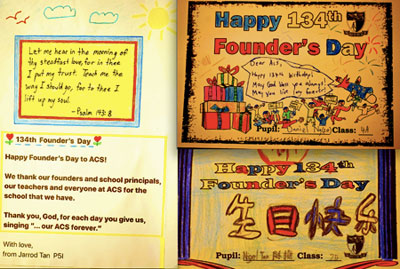 Let me hear in the morning of
thy steadfast love, for in thee
I put my trust. Teach me the
way I should go, for to thee I
lift up my soul.
- Psalm 143:8
134th Founder's Day
Happy Founder's Day to ACS!
We thank our founders and school principals,
our teachers and everyone at ACS for the
school that we have.
Thank you, God, for each day you give us,
singing "... our ACS forever."
With love,
from Jarrod Tan P5I
Happy 134th
Founder's Day
Dear ACS,
Happy 134th Birthday!
May God bless you always!
May you live
Pupil: Daniel Class: 4A
Happy 134th
Founder's Day
生日快乐
Pupil: Nigel Tan Class: